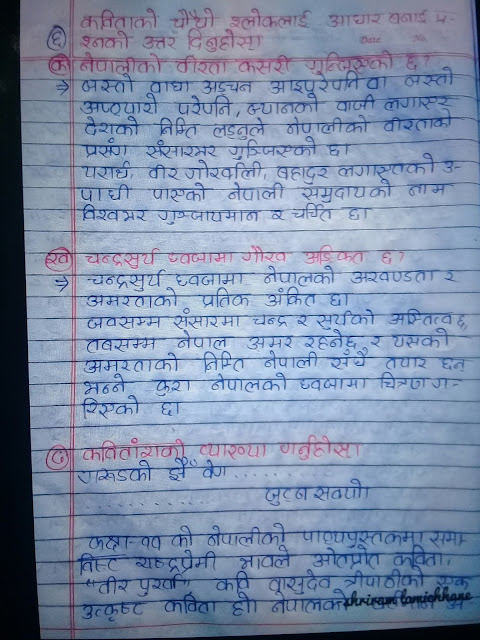 ६ कविताको चौथो श्लोकलाई आधार बनाई प्र-
श्नको उत्तर दिनुहोस।
Date No.
क) नेपालीको वीरता कसरी गुन्जिएको छ?
→ जस्तो बाधा अड्चन आइपुरेपनि वा जस्तो
अप्ठ्यारो परेपनि, ज्यानको बाजी लगाएर
देशको निम्ति लड्नुले नेपालीको वीरताको
प्रसंग संसारभर गुञ्जिएको छ।
परार्घ, वीर गोरखाली, बहादुर लगाएतको उ-
पाधी पाएको नेपाली समुदायको नाम
विश्वभर गुञ्जायमान र चर्चित छ।
ख) चन्द्रसुर्य ध्वजामा गौरव अङ्कित छ?
→ चन्द्रसुर्य ध्वजामा नेपालको अखण्डता र
अमरताको प्रतिक अंकित छ।
जबसम्म संसारमा चन्द्र र सुर्यको अस्तित्व छ,
तबसम्म नेपाल अमर रहनेछ र यसको
अमरताको निम्ति नेपाली सधैं तयार छन्
भन्ने कुरा नेपालको ध्वजामा चित्रण ग-
रिएको छ।
७ कवितांशको व्याख्या गर्नुहोस।
गरुडको झैँ वेग ..........
.................. जुट्न सक्यो।
कक्षा-११ को नेपालीको पाठ्यपुस्तकमा समा-
विष्ट राष्ट्रप्रेमी भावले ओतप्रोत कविता,
"वीर पुर्खा" कवि वासुदेव त्रिपाठीको एक
उत्कृष्ट कविता हो। नेपालको
shriram lamichhane